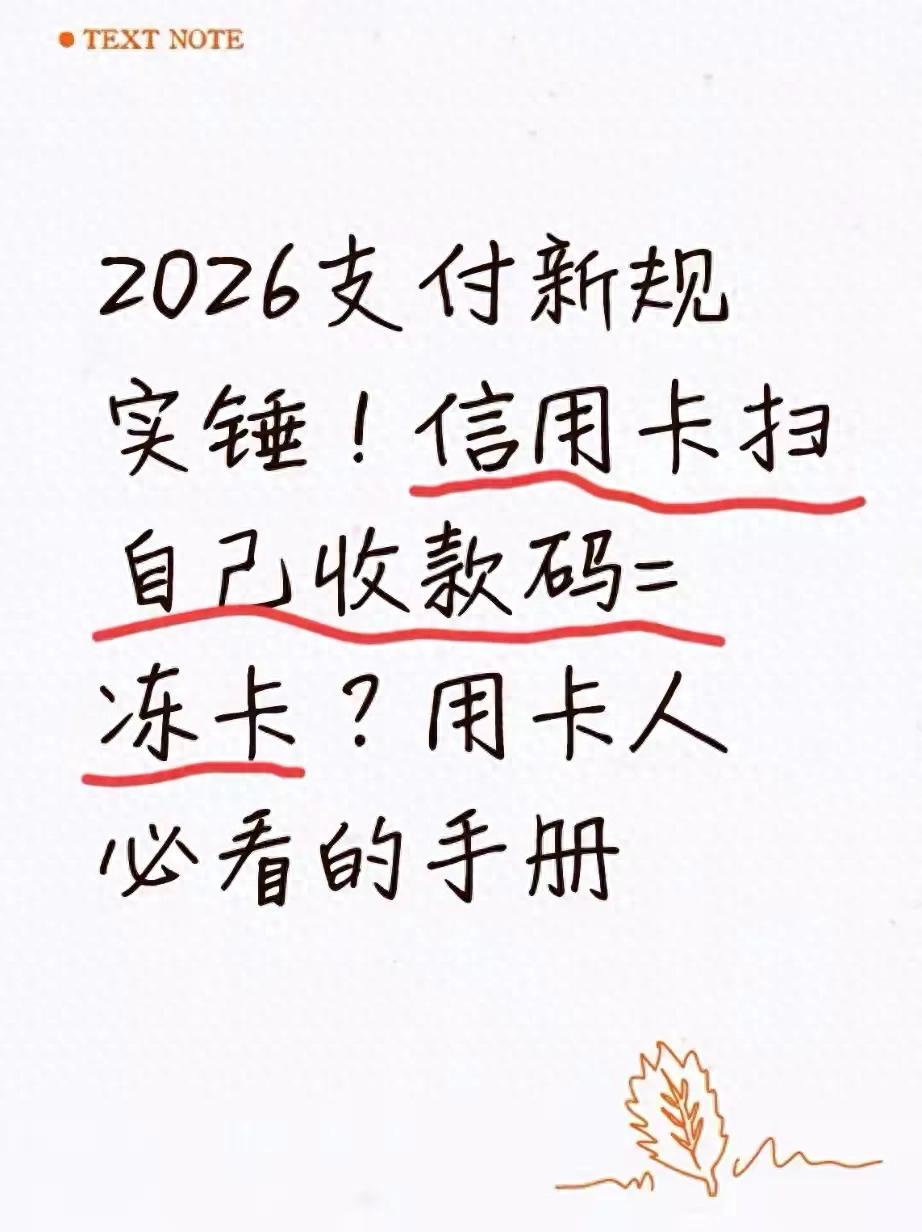 TEXT NOTE
2026支付新规
实锤！信用卡扫
自己收款码=
冻卡？用卡人
必看的手册